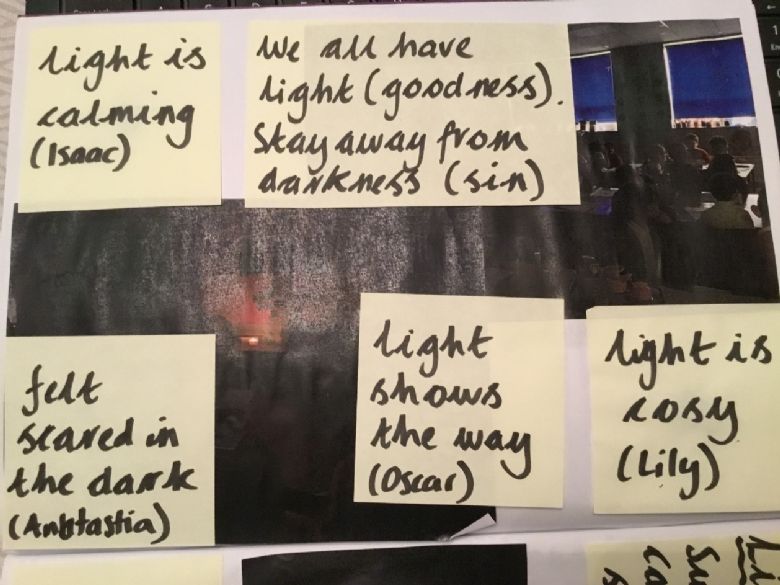 light is
calming
(Isaac)
We all have
light (goodness).
Stay away from
darkness (sin)
felt
scared in
the dark
light
shows
the way
(Oscar)
light is
cosy
(Lily)